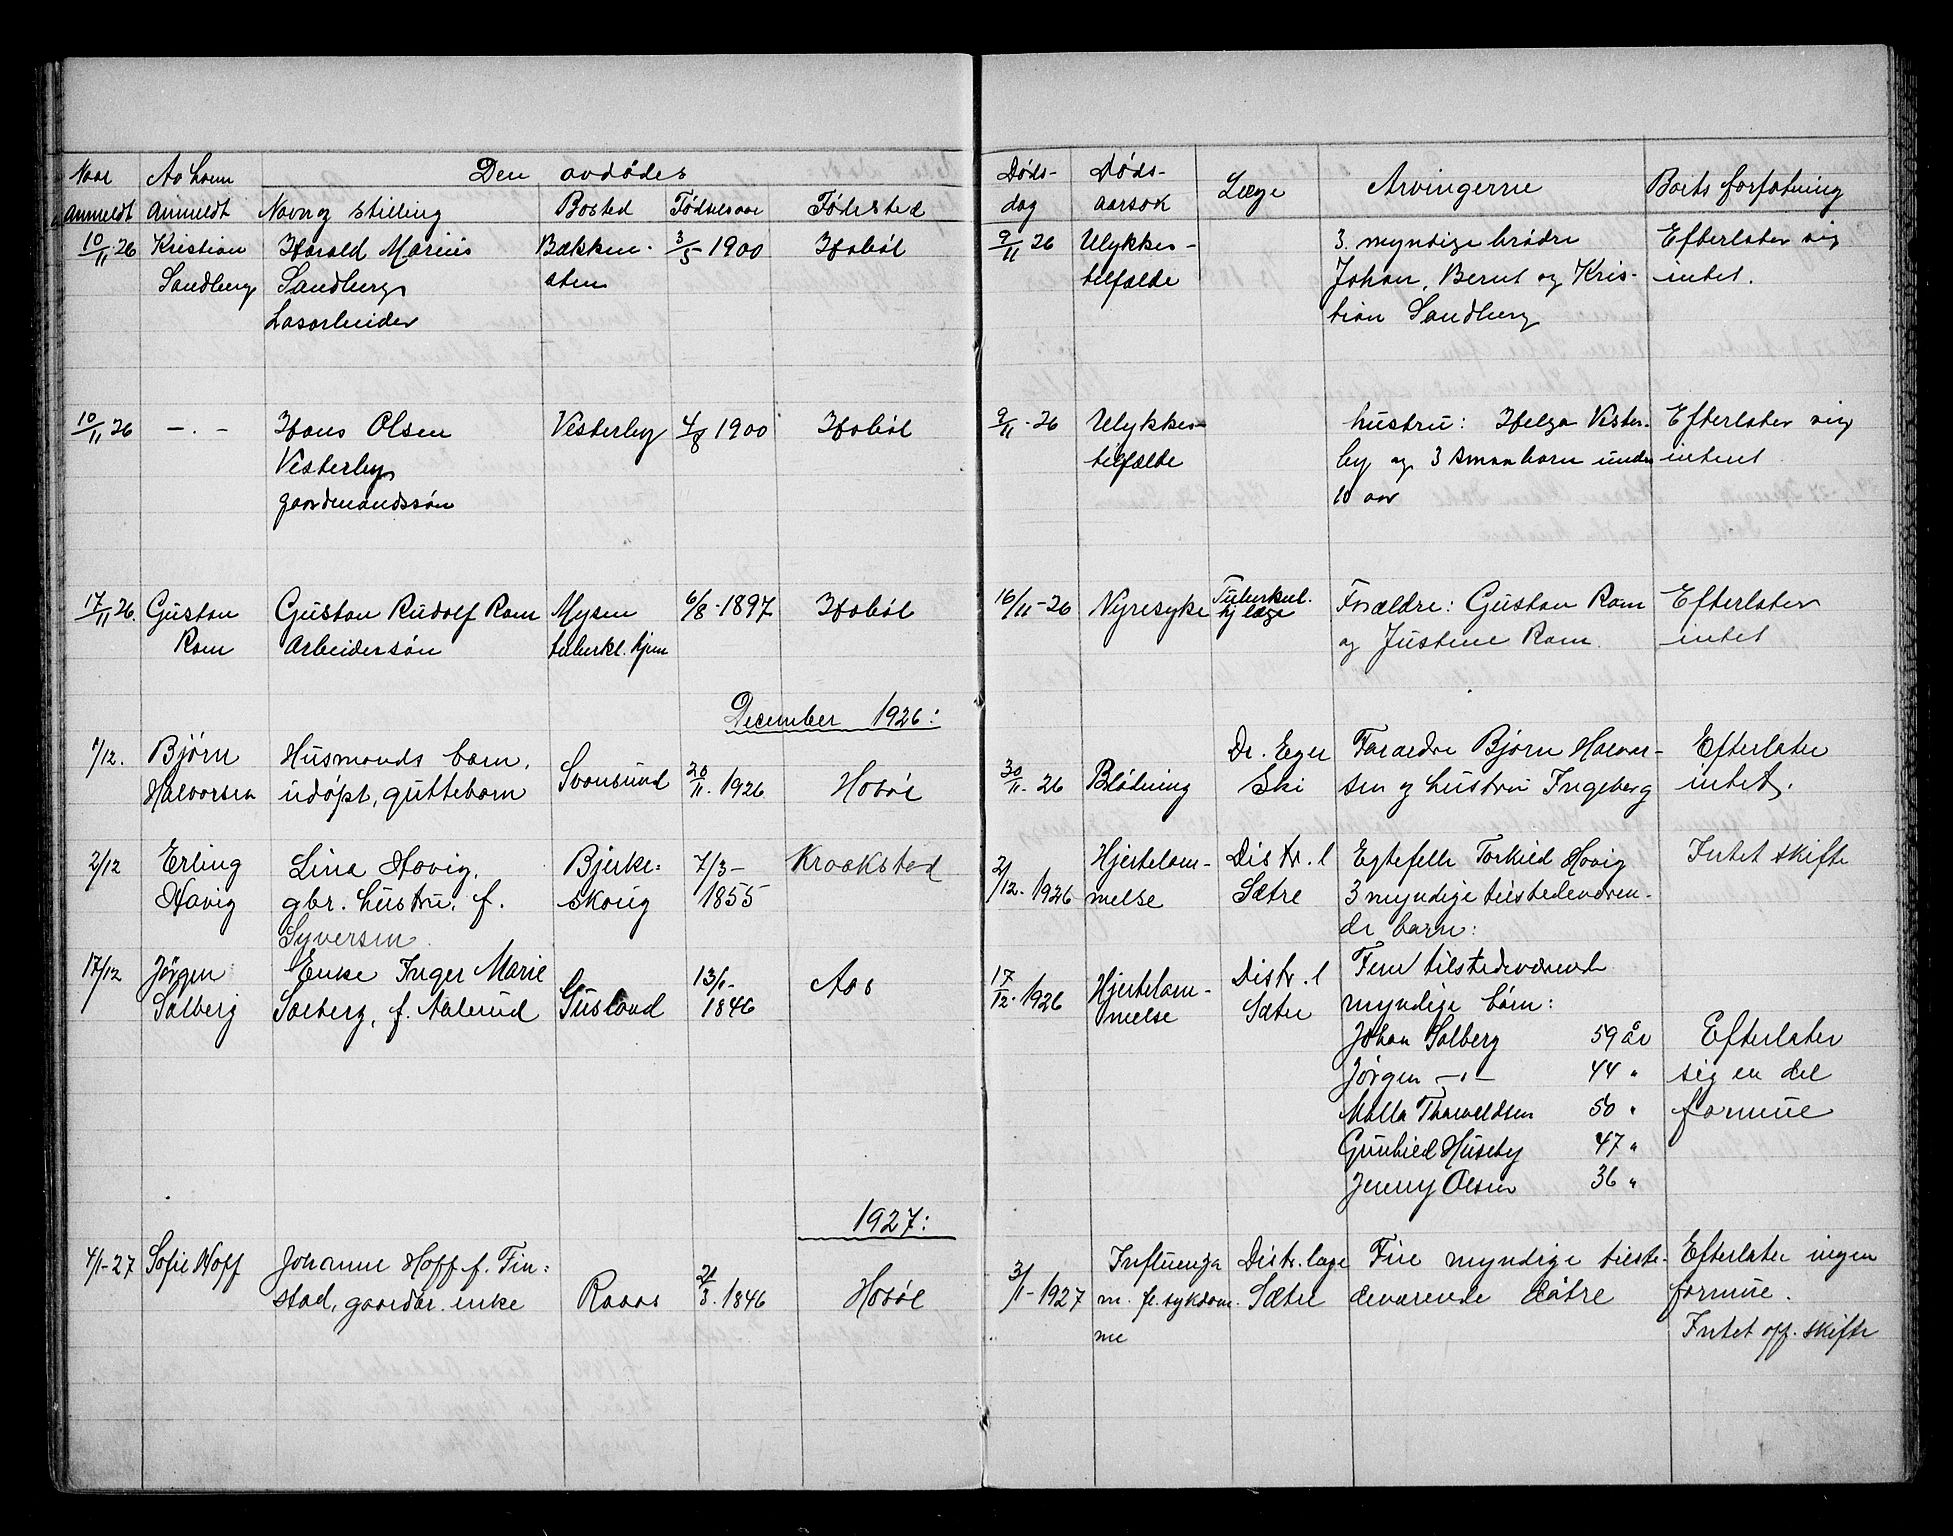 Naar Av hvem Den avdødes
anmeldt anmeldt Navn og stilling Bosted Fødselsaar Fødested
10/11 26 Kristian Harald Marius Bækken- 3/5 1900 Hobøl
Sandberg Sandberg sten
Løsarbeider
10/11 26 - . - Hans Olsen Vesterby 4/8 1900 Hobøl
Vesterby
gaardmandssøn
17/11 26. Gustav Gustav Rudolf Ram Mysen 6/8-1897 Hobøl
Ram Arbeidersøn tuberkl. hjem
December 1926:
1/12. Bjørn Husmands barn, Svensund 20/11. 1926 Hobøl
Halvorsen udøpt, guttebarn
2/12 Erling Lina Hovig, Bjerke- 7/3- Kraakstad
Hovig gbr. hustru, f. skoug 1855
Syversen.
17/12 Jørgen Enke Inger Marie Gusland 13/1- Aas
Solberg Solberg, f. Aalerud 1846
1927:
4/1-27 Sofie Hoff Johanne Hoff f. Fin-
stad, gaardbr. enke Raaas 21/3. 1846 Hobøl
Døds- Døds- Læge Arvingerne Boets forfatning
dag aarsak
9/11 26 Ulykkes- 3. myndige brødre Efterlater sig
tilfælde Johan, Bernt og Kris- intet.
tian Sandberg
9/11-26 Ulykkes- hustru: Helga Vester- Efterlater sig
tilfælde by og 3 smaabarn under intent
10 aar
16/11-26 Nyresyke Tuberkul. Forældre: Gustav Ram Efterlater
hj læge og Justine Ram. intet
Dr. Eger Foraeldre Bjørn Halvor- Efterlater
30/11-26 Blødning Ski sen og hustru Ingeborg intet.
Hjertelam- Distr.l Egtefelle Torkild Hovig Intet skifte
2/12. 1926 melse Sætre 3 myndige tilstedeværen-
de barn:
17/12. 1926 Hjertelam- Distr.l Fem tilstedeværende
melse Sætre myndige børn:
Johan Solberg 59 år Efterlater
Jørgen -"- 44 " sig en del
Molla Thorvaldsen 50 " formue
Gunhild Huseby 47 "
Jenny Olsen 36 "
Influenza Distr. læge Fire myndige tilste- Efterlater ingen
3/1-1927 m. fl. sykdom- Sætre deværende døtre formue.
me Intet off. skifte